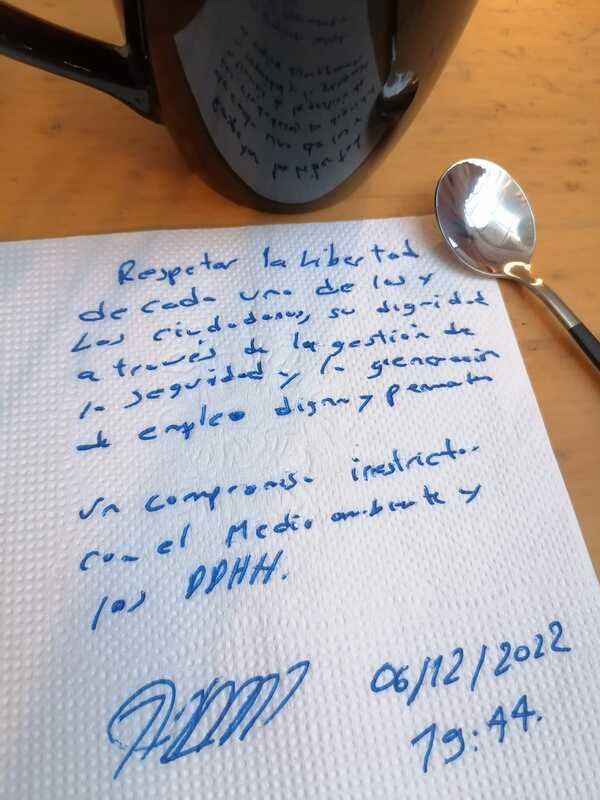 Respetar la Libertad
de cada uno de los y
Las ciudadanos, su dignidad
a través de la gestión de
la seguridad y la generación
de empleo digno y permanente
Un compromiso irrestricto
con el Medio ambiente y
los DDHH.
06/12/2022
19:44.